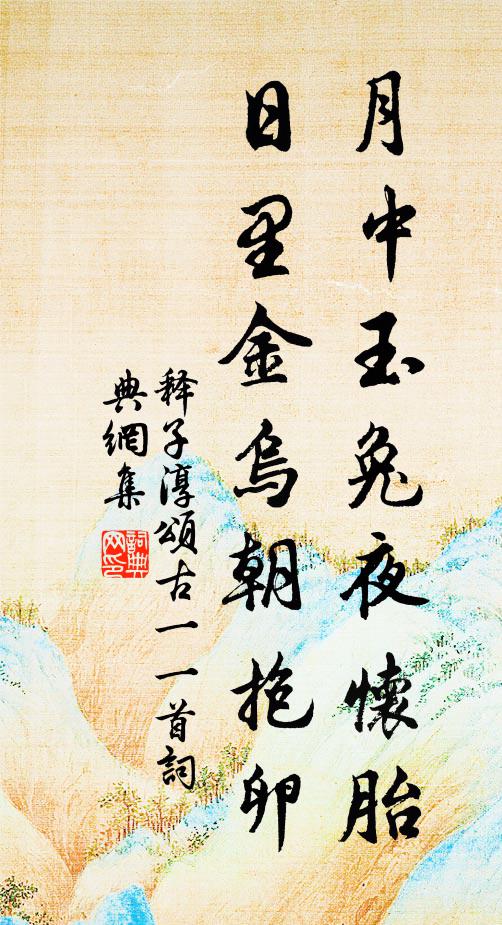 月中玉兔夜懷胎
日里金烏朝抱卵
释子淳頌古一一首詞
典網集
詞典
网印